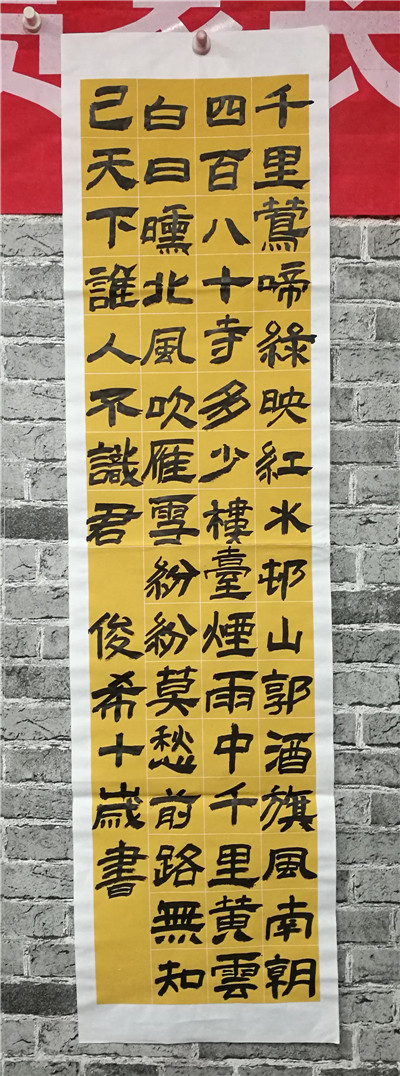 千里鶯啼綠映紅水邨山郭酒旗風南朝
四百八十寺多少樓臺煙雨中千里黄雲
白日曛北風吹雁雪紛紛莫愁前路無知
己天下誰人不識君 俊希十歲書